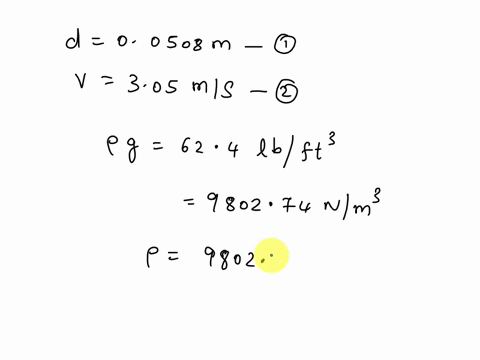 d = 0.0508 m — ①
V = 3.05 m/s — ②
ρg = 62.4 lb/ft³
= 9802.74 N/m³
ρ = 9802.